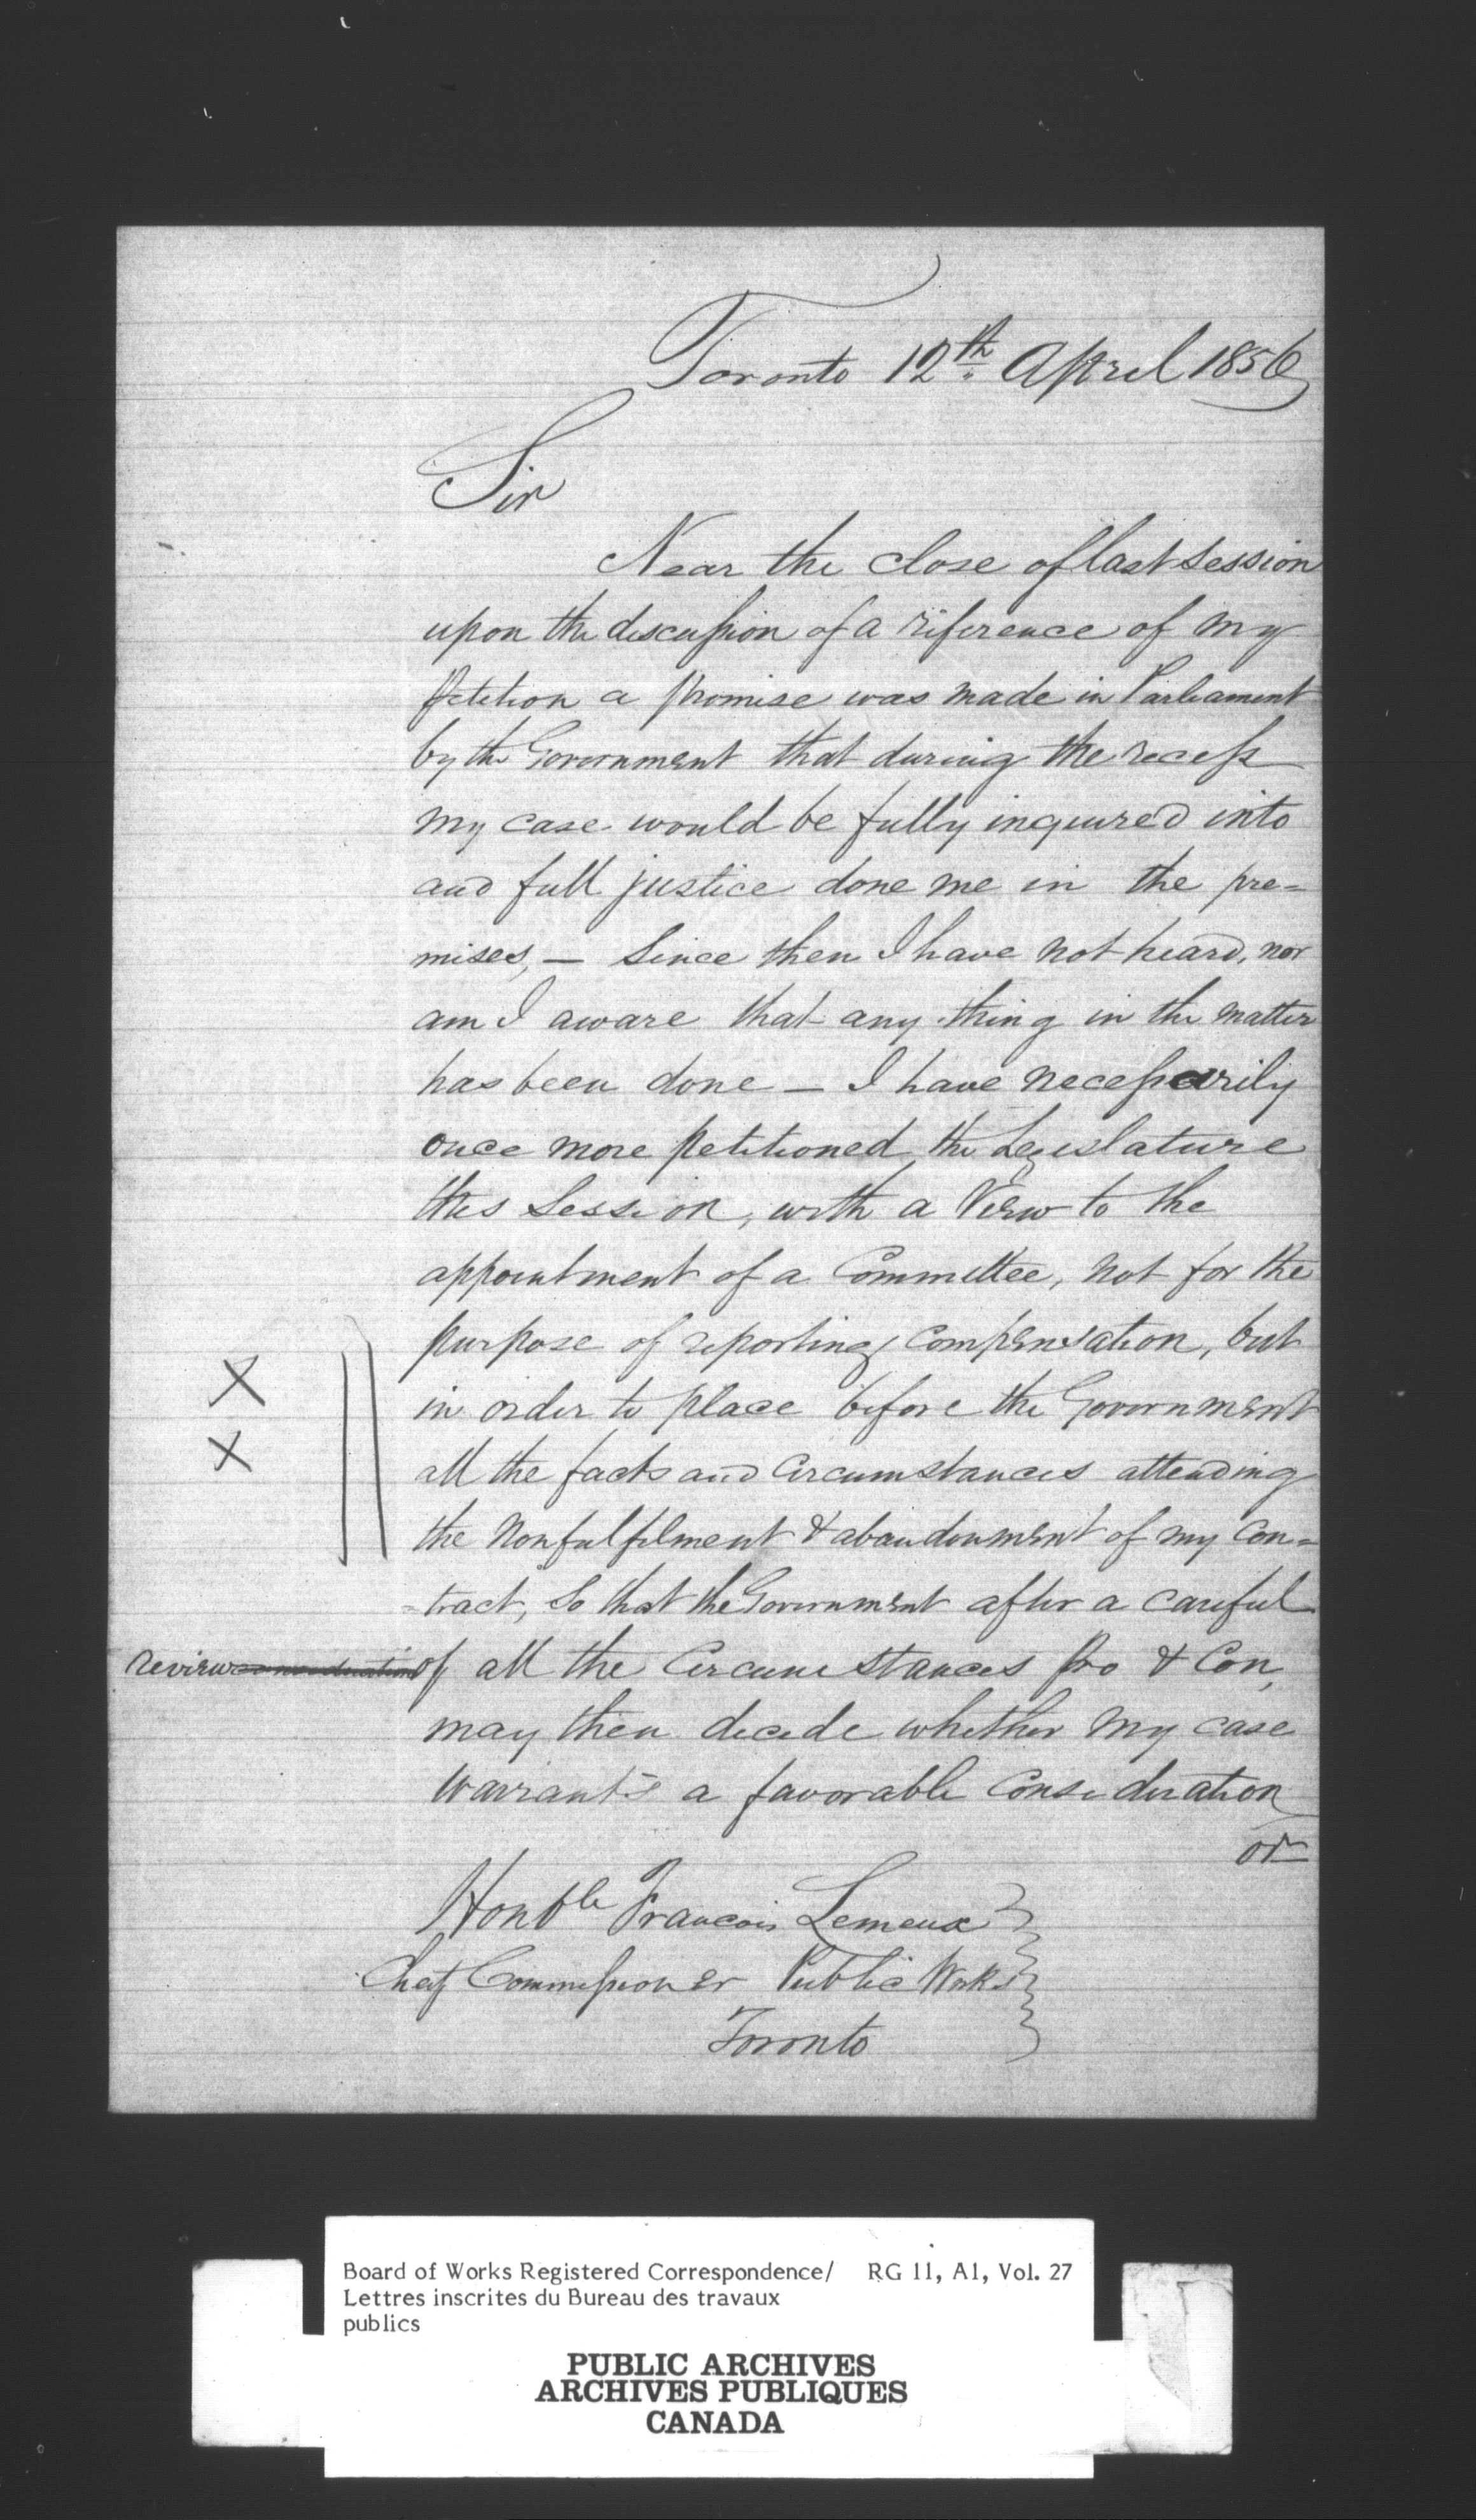 Toronto 12th April 1856
Sir
Near the close of last Session
upon the discussion of a reference of my
Petition a promise was made in Parliament
by the Government that during the recess
my case would be fully inquired into
and full justice done me in the pre=
mises, — Since then I have not heard, nor
am I aware that any thing in the matter
has been done — I have necessarily
once more petitioned the Legislature
this Session, with a View to the
appointment of a Committee, not for the
purpose of reporting compensation, but
in order to place before the Government
all the facts and Circumstances attending
the Nonfulfilment & abandonment of my Con=
=tract, So that the Government after a careful
review consideration of all the Circumstances Pro & Con,
may then decide whether my case
warrants a favorable Consideration
or
Honble Francois Lemeux
Chief Commissioner Public Works
Toronto
X
X
Board of Works Registered Correspondence/ RG 11, A1, Vol. 27
Lettres inscrites du Bureau des travaux
publics
PUBLIC ARCHIVES
ARCHIVES PUBLIQUES
CANADA